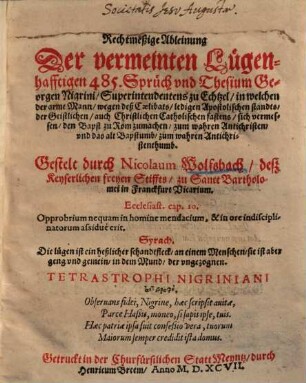 Societatis Jesu Augustæ.
Rechtmeßige Ableinung
Der vermeinten Lügen-
hafftigen 485. Sprüch vnd Thesium Ge-
orgen Nigrini / Superintendentens zu Echtzel / in welchen
der arme Mann / wegen deß Cœlibats / ledigen Apostolischen standes /
der Geistlichen / auch Christlichen Catholischen fastens / sich vermes-
sen / den Bapst zu Rom zumachen / zum wahren Antichristen /
vnd das alt Bapstumb / zum wahren Antichri-
stenthumb.
Gestelt durch Nicolaum Wolfsbach / deß
Keyserlichen freyen Stiffts / zu Sanct Bartholo-
mei in Franckfurt Vicarium.
Ecclesiast. cap. 20.
Opprobrium nequam in homine mendacium, & in ore indiscipli-
natorum assiduè erit.
Syrach.
Die lügen ist ein heßlicher schandtfleck / an einem Menschen / sie ist aber
geng vnd gemein / in dem Mund / der vngezognen.
TETRASTROPHI NIGRINIANI
Obseruans fidei, Nigrine, hæc scripsit auitæ,
Parce
Hæc patriæ ipsa fuit confessio vera, tuorum
Maiorum semper credidit ista domus.
Getruckt in der Churfürstlichen Statt Meyntz / durch
Henricum Breem / Anno M. D. XCVII.